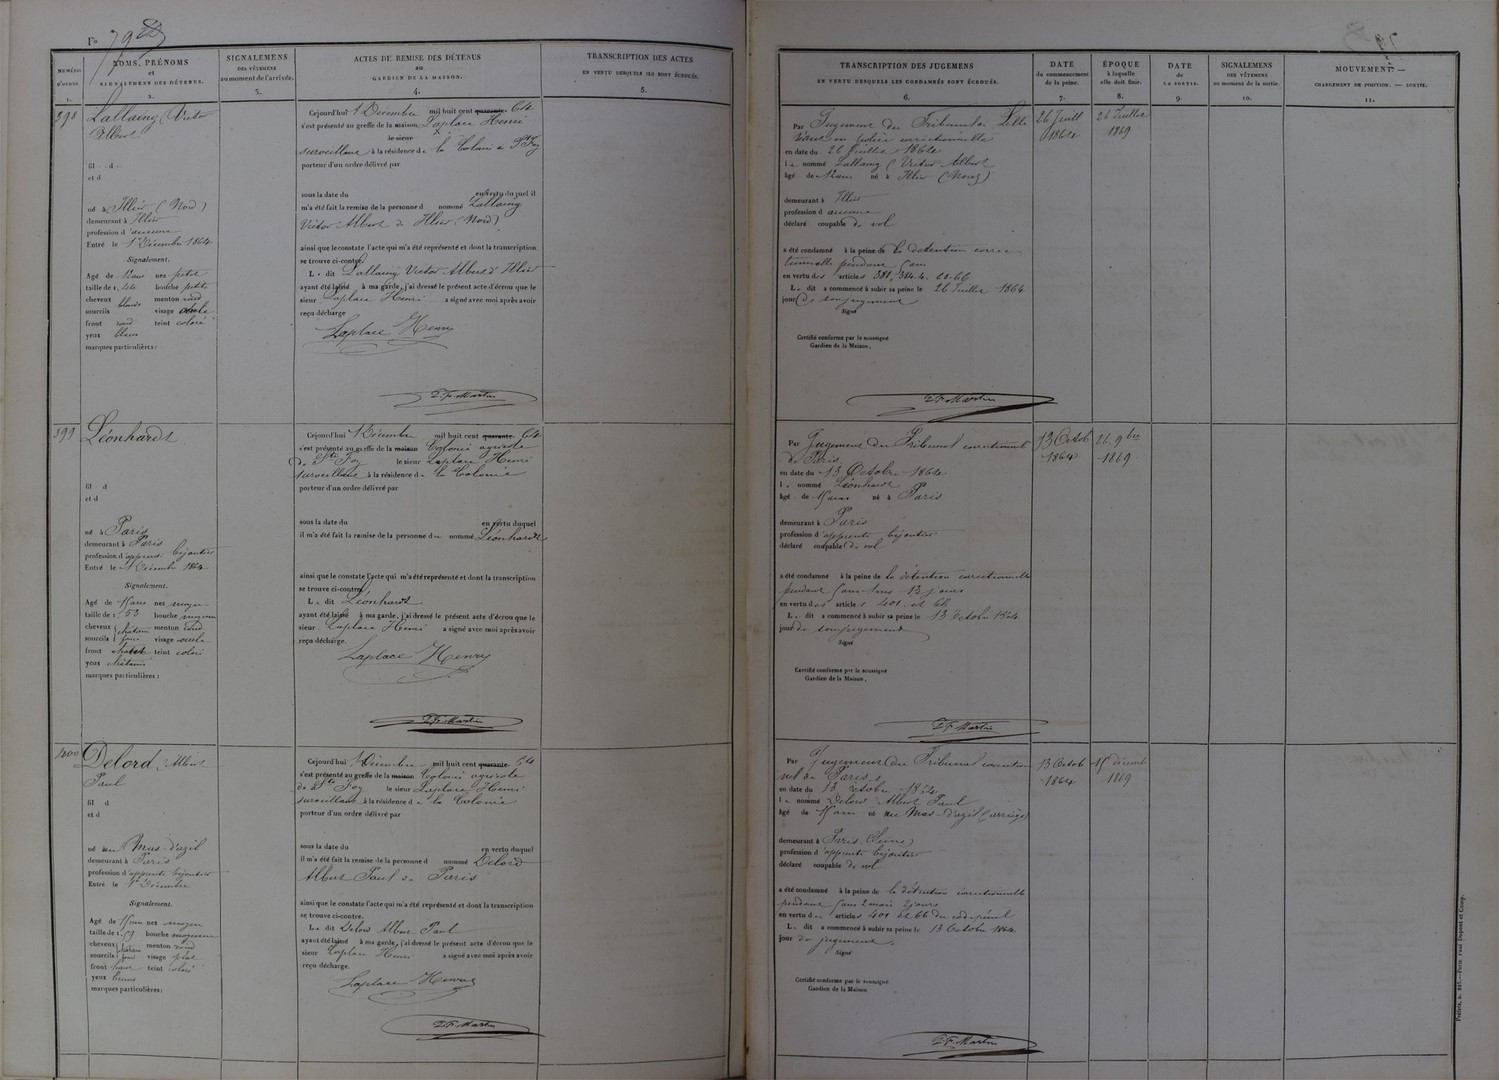 Fo 79
NUMÉRO
D'ORDRE
1.
NOMS, PRÉNOMS
et
SIGNALEMENS DES DÉTENUS.
2.
SIGNALEMENS
DES VÊTEMENS
au moment de l'arrivée.
3.
ACTES DE REMISE DES DÉTENUS
AU
GARDIEN DE LA MAISON.
4.
TRANSCRIPTION DES ACTES
EN VERTU DESQUELS ILS SONT ÉCROUÉS.
5.
398
Lallaing (Victor
Albert
fil d
et d
né à Illiès (Nord)
demeurant à Illiès
profession d'aucune
Entré le 1er Décembre 1864
Signalement.
Agé de 12 ans nez petit
taille de 1, 44 bouche petite
cheveux blonds menton rond
sourcils visage ovale
front rond teint coloré
yeux bleus
marques particulières :
Cejourd'hui 1er Décembre mil huit cent quarante 64
s'est présenté au greffe de la maison Laplace Henri
le sieur
surveillant à la résidence de la Colonie de Ste Foy
porteur d'un ordre délivré par
sous la date du en vertu duquel il
m'a été fait la remise de la personne d nommé Lallaing
Victor Albert de Illiès (Nord)
ainsi que le constate l'acte qui m'a été représenté et dont la transcription
se trouve ci-contre.
Le dit Lallaing Victor Albert d'Illiès
ayant été laissé à ma garde, j'ai dressé le présent acte d'écrou que le
sieur Laplace Henri a signé avec moi après avoir
reçu décharge
Laplace Henry
J. F. Martin
399
Léonhardt
fil d
et d
né à Paris
demeurant à Paris
profession d'apprenti bijoutier
Entré le 1er Décembre 1864
Signalement.
Agé de 15 ans nez moyen
taille de 1, 53 bouche moyenne
cheveux châtain menton rond
sourcils visage ovale
front teint coloré
yeux châtains
marques particulières :
Cejourd'hui 1er Décembre mil huit cent quarante 64
s'est présenté au greffe de la maison Colonie agricole
de Ste Foy le sieur Laplace Henri
surveillant à la résidence de la Colonie
porteur d'un ordre délivré par
sous la date du en vertu duquel
il m'a été fait la remise de la personne du nommé Léonhardt
ainsi que le constate l'acte qui m'a été représenté et dont la transcription
se trouve ci-contre.
Le dit Léonhardt
ayant été laissé à ma garde, j'ai dressé le présent acte de l'écrou que le
sieur Laplace Henri a signé avec moi après avoir
reçu décharge.
Laplace Henry
J. F. Martin
400
Delord, Albert
Paul
fil d
et d
né au Mas-d'azil
demeurant à Paris
profession d'apprenti bijoutier
Entré le 1er Décembre
Signalement.
Agé de 15 ans nez moyen
taille de 1, 59 bouche moyenne
cheveux châtain menton rond
sourcils visage plat
front teint coloré
yeux bruns
marques particulières :
Cejourd'hui 1er Décembre mil huit cent quarante 64
s'est présenté au greffe de la maison Colonie agricole
de Ste Foy le sieur Laplace Henri
surveillant à la résidence de la Colonie
porteur d'un ordre délivré par
sous la date du en vertu duquel
il m'a été fait la remise de la personne d nommé Delord
Albert Paul de Paris
ainsi que le constate l'acte qui m'a été représenté et dont la transcription
se trouve ci-contre.
Le dit Delord Albert Paul
ayant été laissé à ma garde, j'ai dressé le présent acte d'écrou que le
sieur Laplace Henri a signé avec moi après avoir
reçu décharge.
Laplace Henry
J. F. Martin
TRANSCRIPTION DES JUGEMENS
EN VERTU DESQUELS LES CONDAMNÉS SONT ÉCROUÉS.
6.
DATE
du commencement
de la peine.
7.
ÉPOQUE
à laquelle
elle doit finir.
8.
DATE
de
LA SORTIE.
9.
SIGNALEMENS
DES VÊTEMENS
au moment de la sortie.
10.
MOUVEMENT. —
CHANGEMENT DE POSITION. — SORTIE.
11.
Par Jugement du Tribunal de Lille
en police correctionnelle
en date du 26 Juillet 1864
le nommé Lallaing (Victor Albert
âgé de 12 ans né à Illiès (Nord)
demeurant à Illiès
profession d aucune
déclaré coupable de vol
a été condamné à la peine de la détention correc
tionnelle pendant 5 ans
en vertu des articles 381, 384. 4. et 66
Le dit a commencé à subir sa peine le 26 Juillet 1864
jour de son jugement
Signé
Certifié conforme par le soussigné
Gardien de la Maison.
J. F. Martin
26 Juill
1864
26 Juillet
1869
Par Jugement du Tribunal correctionnel
de Paris
en date du 13 Octobre 1864
le nommé Léonhardt
âgé de 15 ans né à Paris
demeurant à Paris
profession d'apprenti bijoutier
déclaré coupable de vol
a été condamné à la peine de la détention correctionnelle
pendant 5 ans 1 mois 13 jours
en vertu des articles 401 et 66
Le dit a commencé à subir sa peine le 13 Octobre 1864
jour de son jugement
Signé
Certifié conforme par le soussigné
Gardien de la Maison,
J. F. Martin
13 Octob
1864
26 9bre
1869
Par Jugement du Tribunal correction
nel de Paris
en date du 13 Octobre 1864
le nommé Delord Albert Paul
âgé de 15 ans né au Mas-d'azil (arriège)
demeurant à Paris (Seine)
profession d'apprenti bijoutier
déclaré coupable de vol
a été condamné à la peine de la détention correctionnelle
pendant 5 ans 2 mois 2 jours
en vertu des articles 401 et 66 du code pénal
Le dit a commencé à subir sa peine le 13 Octobre 1864
jour du jugement
Signé
Certifié conforme par le soussigné
Gardien de la Maison
J. F. Martin
13 Octob
1864
15 Décemb
1869